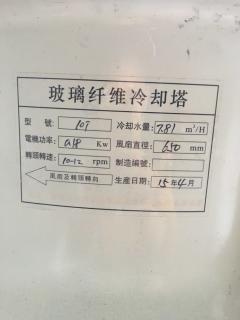 玻璃纤维冷却塔
型 號: 10T 冷却水量: 7.81 m³/H
電機功率: 0.18 Kw 風扇直徑: 650 mm
轉頭轉速: 10-12 rpm 制造編號:
風扇及轉頭轉向 生産日期: 15年4月